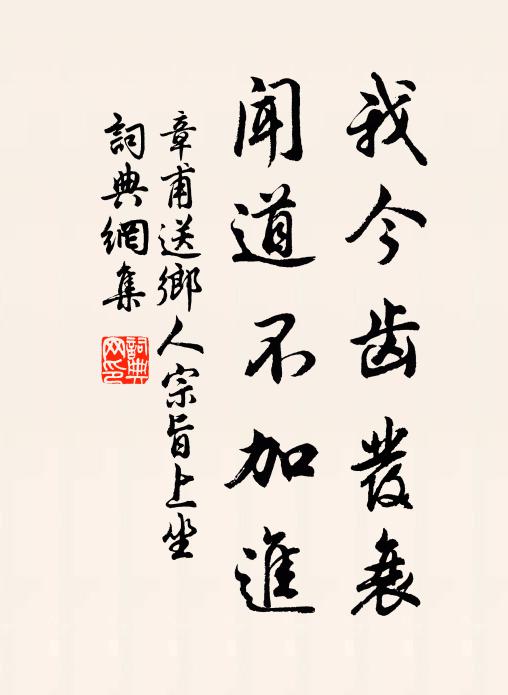 我今齿發衰
聞道不加進
章甫送鄉人宗旨上坐
詞典網集
詞典网印